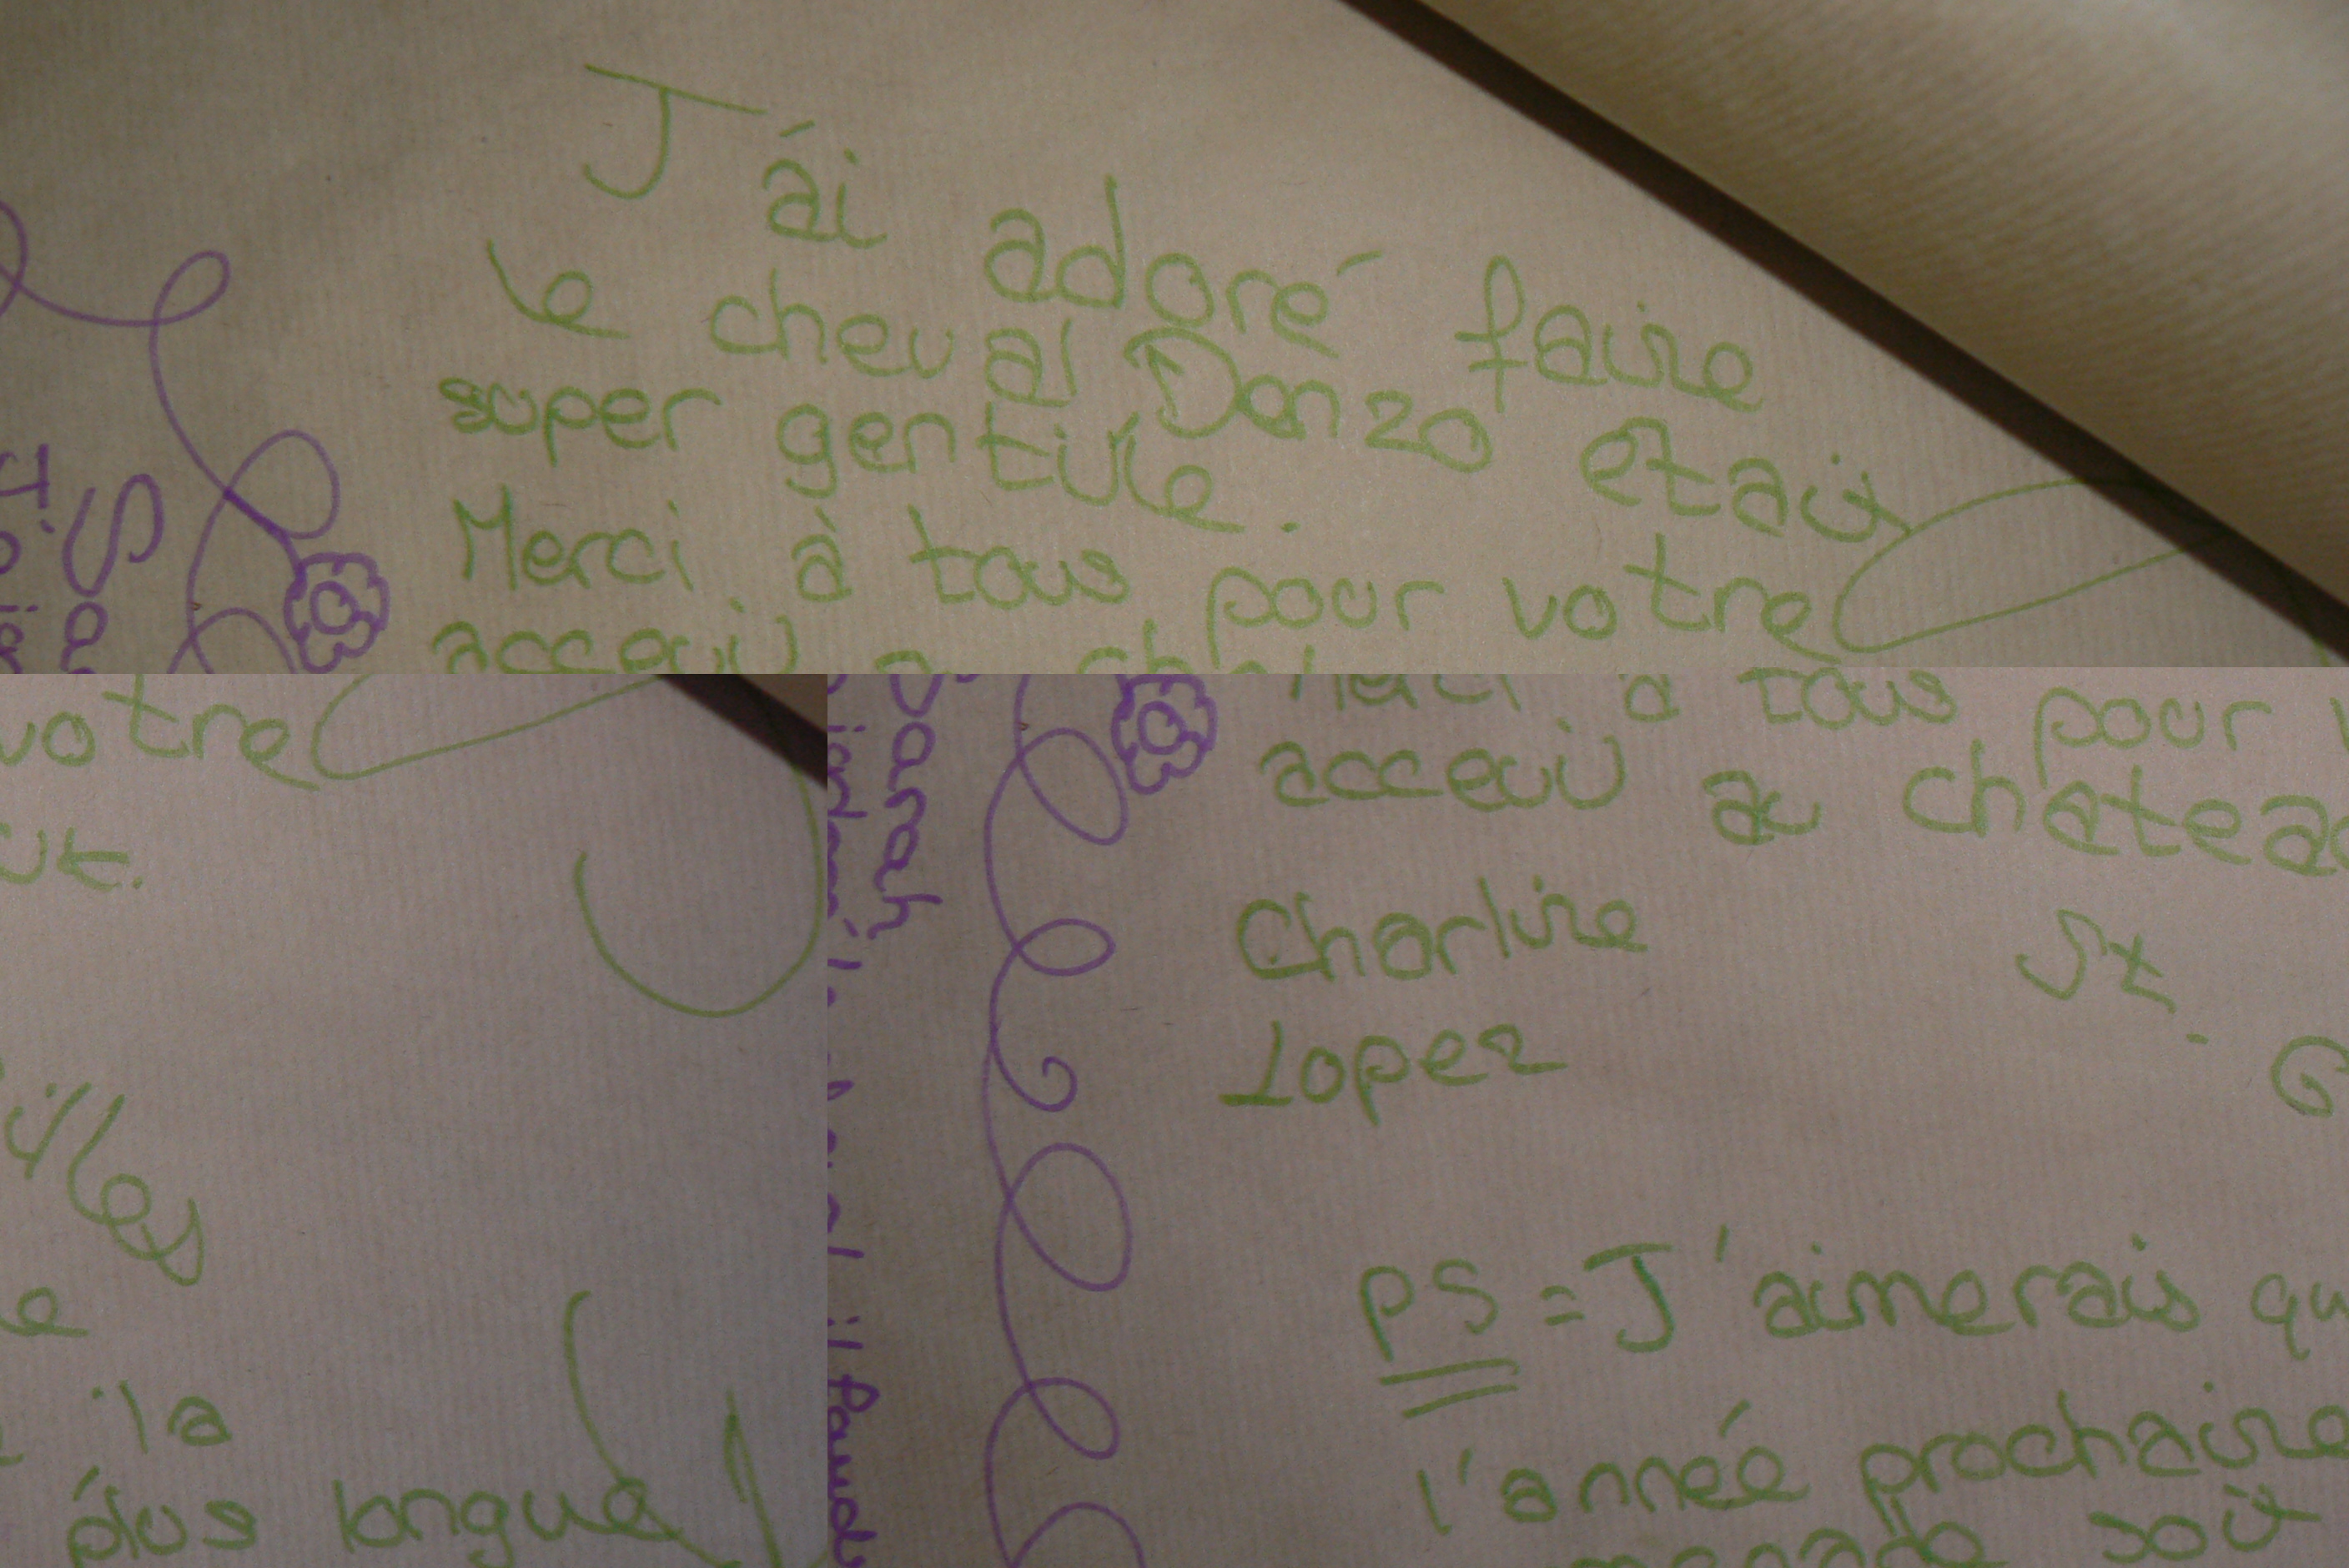 J'ai adoré faire
le cheval Donzo était
super gentille.
Merci à tous pour votre
acceuil a ch
votre
it.
illes
e
la
plus longue
Merci à tous pour v
acceuil au chateau
Charline
St.
Lopez
G
PS = J'aimerais qu
l'année prochaine
menade soit
Sarah
il faud